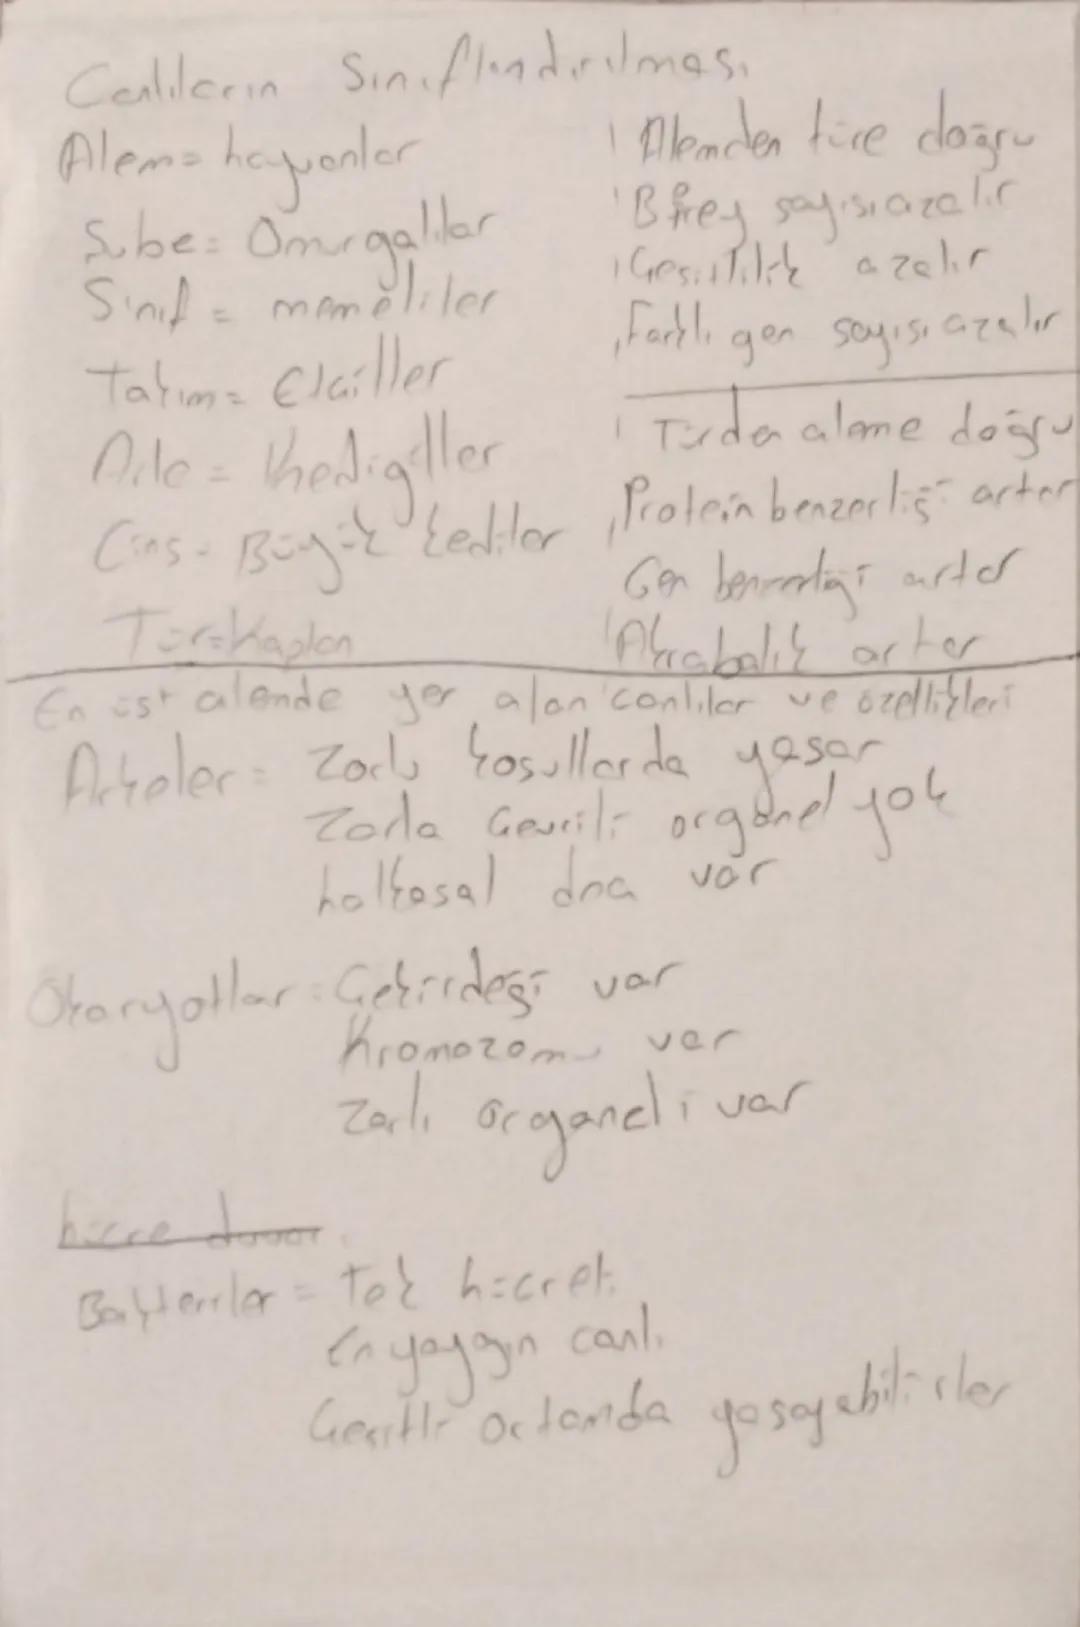 Canlıların Sınıflandırılması
Alem= hayvanlar
Şube= Omurgalılar
Sınıf = memeliler
Takım= Etçiller
Aile = Kedigiller
Cins= Büyük kediler
Tür=Kaplan
Alemden türe doğru
Birey sayısı azalır
Çeşitlilik azalır
Farklı gen sayısı azalır
Türden aleme doğru
Protein benzerliği artar
Gen benzerliği artar
Akrabalık artar
En üst alemde yer alan canlılar ve özellikleri
Arkeler= Zorlu koşullarda yaşar
Zarla Çevrili organel yok
halkasal dna var
Ökaryotlar: Çekirdeği var
Kromozomu var
Zarlı organeli var
hücre duvar
Bakteriler = Tek hücreli
En yaygın canlı
Çeşitli ortamda yaşayabilirler